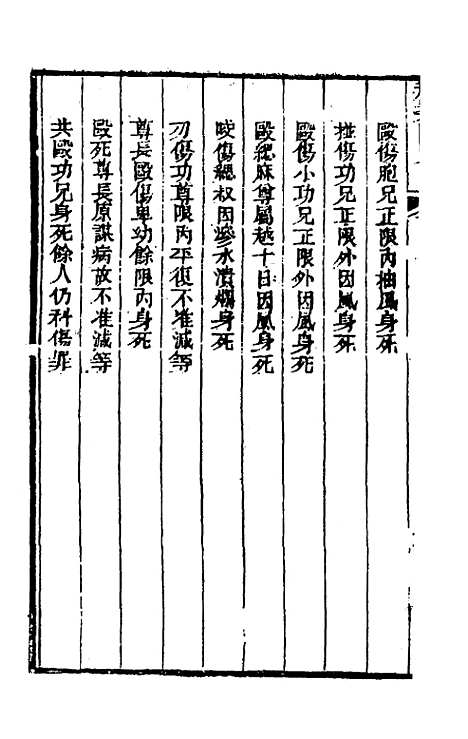 毆傷胞兄正限內抽風身死
推傷功兄正限外因風身死
毆傷小功兄正限外因風身死
毆緦麻尊屬越十日因風身死
咬傷緦叔因滲水潰爛身死
刃傷功尊限內平復不准減等
尊長毆傷卑幼餘限內身死
毆死尊長原謀病故不准減等
共毆功兄身死餘人仍科傷罪